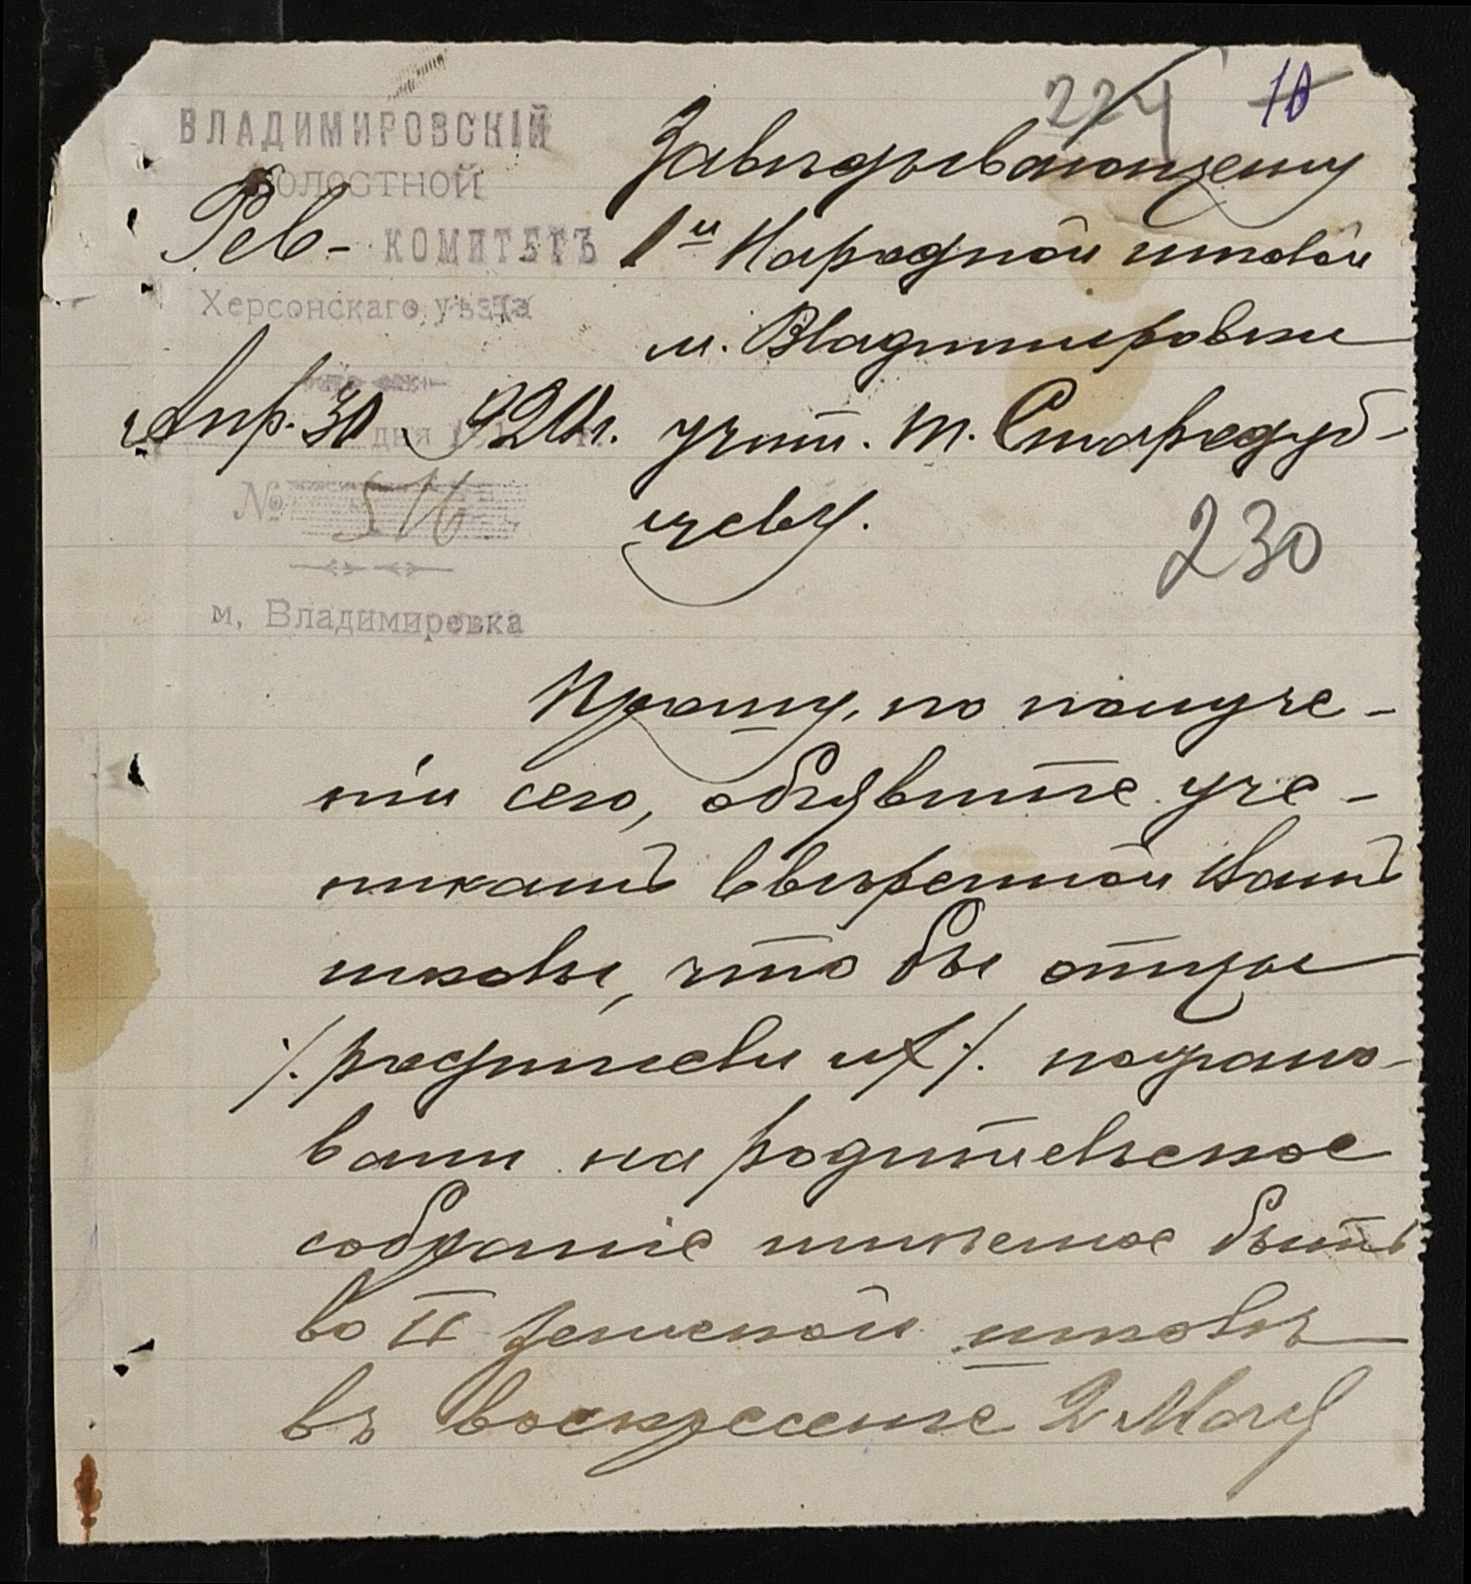 224 10
ВЛАДИМИРОВСКІЙ
ВОЛОСТНОЙ
Рев- КОМИТЕТЪ
Херсонскаго уѣзда
Апр. 30 дня 1920 г.
№ 516
м, Владимировка
Завѣдывающему
1й Народной школой
м. Владимировки
учит. т. Стародуб-
цеву.
230
Прошу, по получе-
ніи сего, объявите уче-
никамъ ввѣренной Вамъ
школы, что бы отцы
/. родители их /. пожало-
вали на родительское
собраніе имѣемое быть
во II земской школѣ
въ воскресеніе 2 Мая